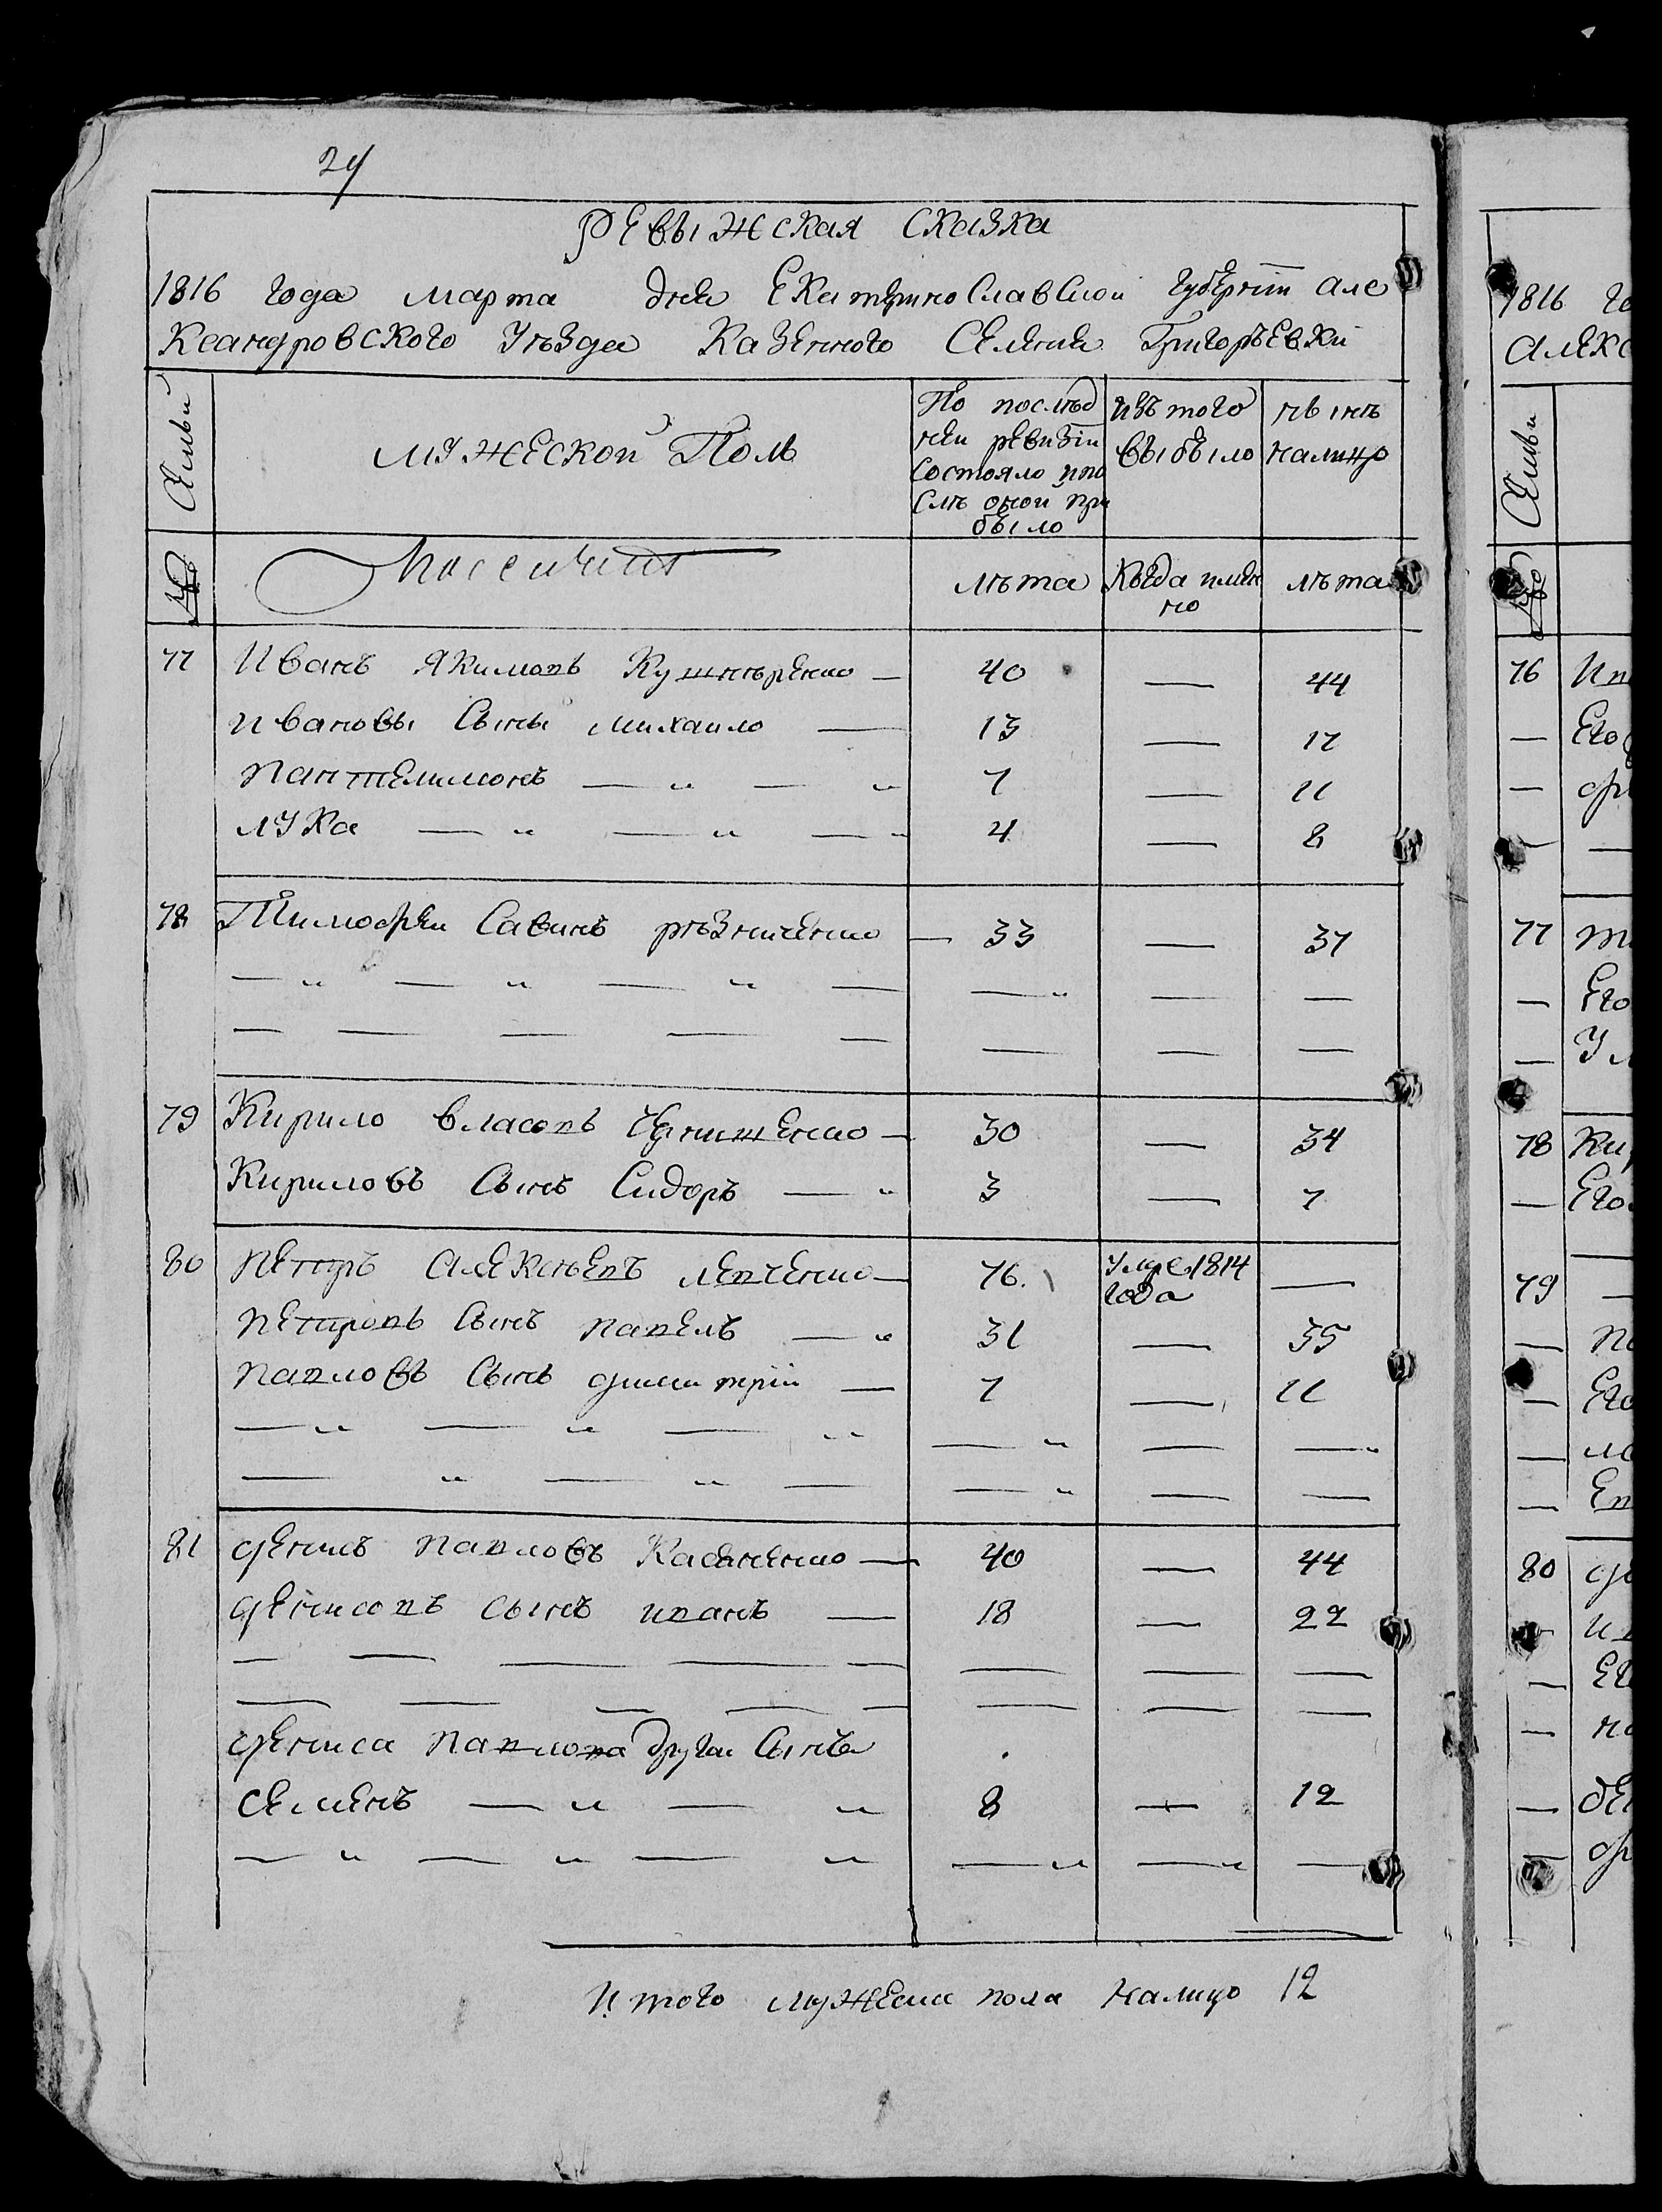 24
РЕВЫЖСКАЯ СКАЗКА
1816 года марта дня Екатеринославской губернїи Але
ксандровского Уѣзда Казенного Селения Григорьевки
Семьи
мужеской Поль
По послѣд
ней ревизїи
состояло и по
слѣ оной при
было
изъ того
выбыло
нынѣ
налицо
№
лѣта
Когда имен
но
лѣта
77 Иванъ Якимовъ Кушнѣренко — 40 — 44
Ивановы Сыны михаило — 13 — 17
Пантелимонъ — „ — „ 7 — 11
лука — „ — „ — „ 4 — 8
78 Тимофеи Савинъ рѣзниченко — 33 — 37
79 Кирило власовъ Чернишенко — 30 — 34
Кириловъ Сынъ Сидоръ — „ 3 — 7
80 Петръ Алексѣевъ левченко — 76. Умре 1814 —
года
Петровъ Сынъ павелъ — „ 31 — 35
павловъ Сынъ дмитрїи — 7 — 11
81 денисъ павловъ Касяненко — 40 — 44
денисовъ сынъ иванъ — 18 — 22
дениса павлова другаи Сынъ
семенъ — „ — „ 8 — 12
Итого мужеска пола налицо 12
1816
Алекс
Семьи
№
76
— Его
77
— Его
78 Кир
— Его
79 —
— Его
80